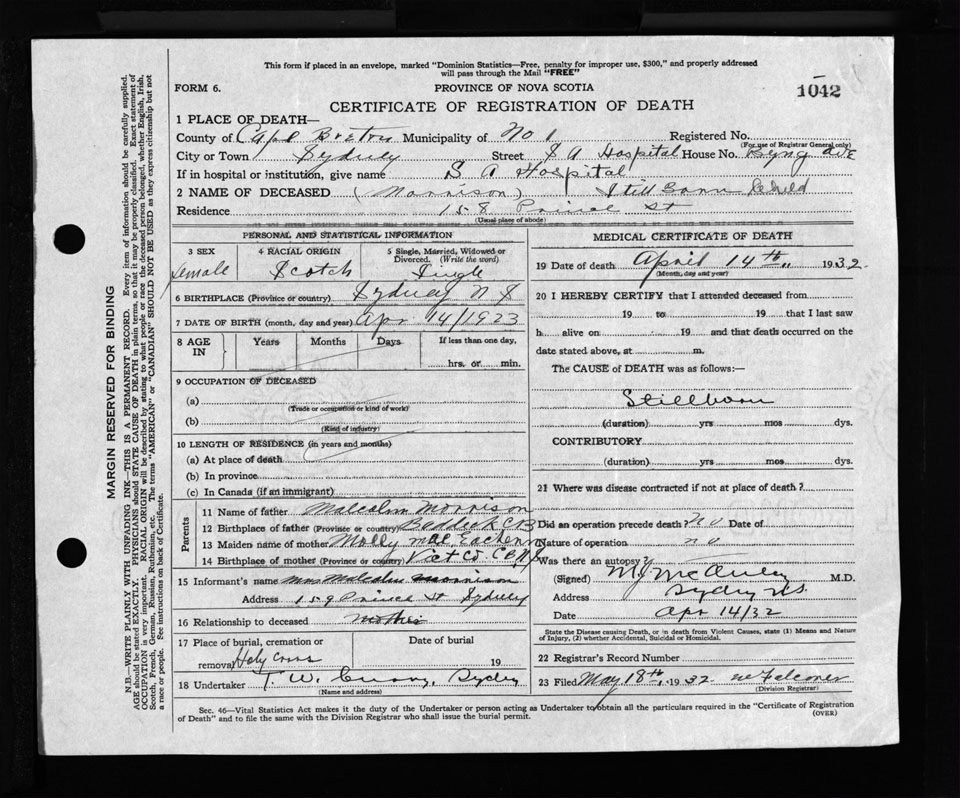 This form if placed in an envelope, marked "Dominion Statistics—Free, penalty for improper use, $300," and properly addressed
will pass through the Mail "FREE"
FORM 6.
PROVINCE OF NOVA SCOTIA
1042
CERTIFICATE OF REGISTRATION OF DEATH
1 PLACE OF DEATH—
County of Cape Breton Municipality of No 1 Registered No.
(For use of Registrar General only)
City or Town Sydney Street S A Hospital House No. Byng Ave
If in hospital or institution, give name S A Hospital
2 NAME OF DECEASED (Morrison) Still Born Child
Residence 158 Prince St
(Usual place of abode)
PERSONAL AND STATISTICAL INFORMATION
3 SEX 4 RACIAL ORIGIN 5 Single, Married, Widowed or Divorced. (Write the word)
Female Scotch Single
6 BIRTHPLACE (Province or country) Sydney N S
7 DATE OF BIRTH (month, day and year) Apr 14/1923
8 AGE IN Years Months Days If less than one day,
hrs. or min.
9 OCCUPATION OF DECEASED
(a)
(Trade or occupation or kind of work)
(b)
(Kind of industry)
10 LENGTH OF RESIDENCE (in years and months)
(a) At place of death
(b) In province
(c) In Canada (if an immigrant)
Parents
11 Name of father Malcolm Morrison
12 Birthplace of father (Province or country) Baddeck CB
13 Maiden name of mother Molly Mac Eachern
14 Birthplace of mother (Province or country) Vict Co. C B N S
15 Informant's name Mrs Malcolm Morrison
Address 159 Prince St Sydney
16 Relationship to deceased Mother
17 Place of burial, cremation or Date of burial
removal Holy Cross 19
18 Undertaker T. W. Curry, Sydney
(Name and address)
MEDICAL CERTIFICATE OF DEATH
19 Date of death April 14th, 1932.
(Month, day and year)
20 I HEREBY CERTIFY that I attended deceased from
19 to 19 that I last saw
h alive on 19 and that death occurred on
date stated above, at m.
The CAUSE of DEATH was as follows:—
Stillborn
(duration) yrs mos dys.
CONTRIBUTORY
(duration) yrs mos dys.
21 Where was disease contracted if not at place of death?
Did an operation precede death? no Date of
Nature of operation no
Was there an autopsy?
(Signed) M.D.
Address Sydney N.S.
Date Apr 14/32
State the Disease causing Death, or in death from Violent Causes, state (1) Means and Nature
of Injury, (2) whether Accidental, Suicidal or Homicidal.
22 Registrar's Record Number
23 Filed May 18th, 1932 W Falconer
(Division Registrar)
Sec. 46—Vital Statistics Act makes it the duty of the Undertaker or person acting as Undertaker to obtain all the particulars required in the "Certificate of Registration
of Death" and to file the same with the Division Registrar who shall issue the burial permit.
(OVER)
MARGIN RESERVED FOR BINDING
N.B.—WRITE PLAINLY WITH UNFADING INK—THIS IS A PERMANENT RECORD. Every item of information should be carefully supplied.
AGE should be stated EXACTLY. PHYSICIANS should STATE CAUSE OF DEATH in plain terms, so that it may be properly classified. Exact statement of
OCCUPATION is very important. RACIAL ORIGIN will be described by stating to what people or race the deceased person belonged, whether English, Irish,
Scotch, French, German, Russian, Ruthenian, etc. The terms "AMERICAN" or "CANADIAN" SHOULD NOT BE USED as they express citizenship but not
a race or people. See instructions on back of Certificate.